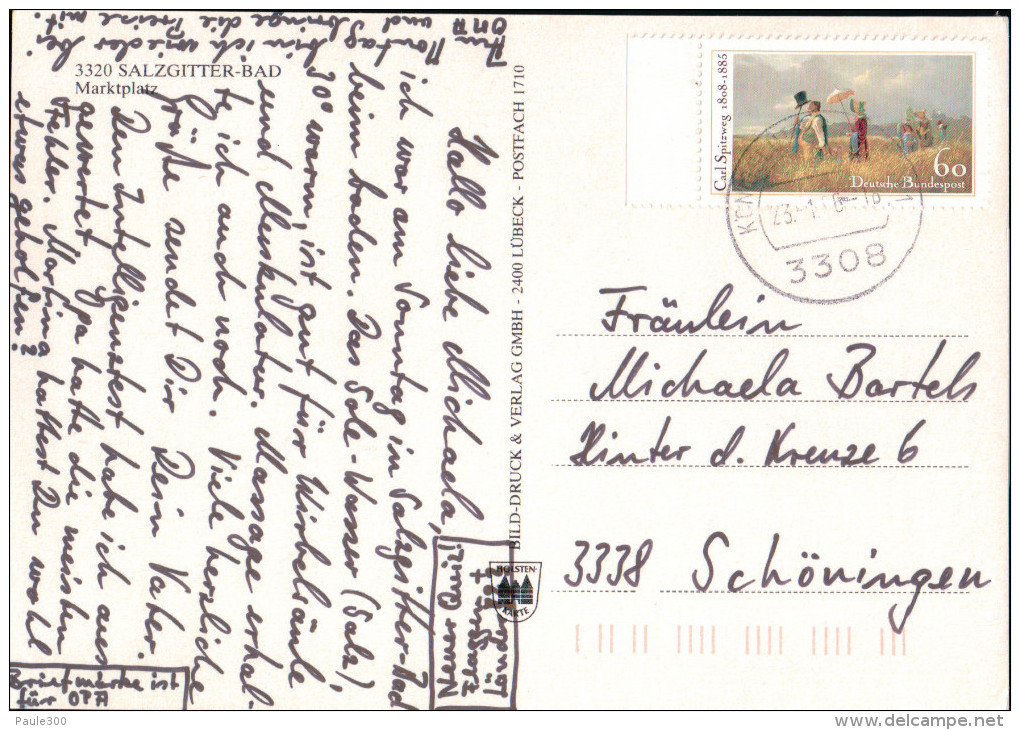 3320 SALZGITTER-BAD
Marktplatz
Hallo liebe Michaela,
ich war am Sonntag in Salzgitter-Bad
beim baden. Das Sole-Wasser (Salz)
30° warm, ist gut für Wirbelsäule
und Muskulatur. Massage erhal-
te ich auch noch. Viele herzliche
Grüße sendet Dir Dein Vater.
Den Intelligenztest habe ich aus
gewertet. Opa hatte die meisten
Fehler. Martina hattest Du wohl
etwas geholfen?
Am Montag bin ich wieder bei
OMA und bringe die Preise mit.
Neues Quiz
Flaggen +
Länder
Briefmarke ist
für OPA
BILD-DRUCK & VERLAG GMBH - 2400 LÜBECK - POSTFACH 1710
HOLSTEN-
KARTE
Carl Spitzweg 1808-1885
60
Deutsche Bundespost
3308
Fräulein
Michaela Bartels
Hinter d. Kreuze 6
3338 Schöningen
Paule300
www.delcampe.net